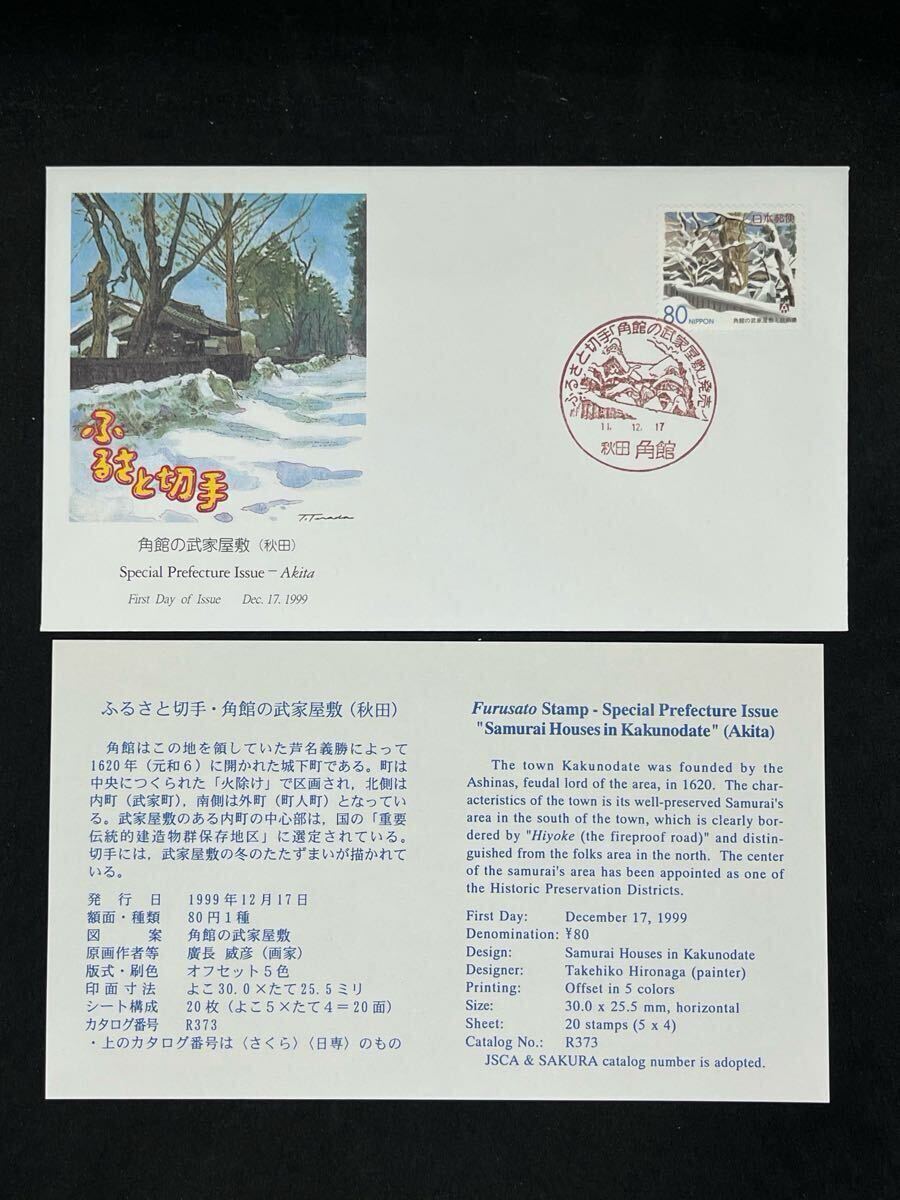 日本郵便
80 NIPPON
角館の武家屋敷
ふるさと切手「角館の武家屋敷」発売
11. 12. 17
秋田 角館
ふるさと切手
T. Terada
角館の武家屋敷（秋田）
Special Prefecture Issue － Akita
First Day of Issue Dec. 17. 1999
ふるさと切手・角館の武家屋敷（秋田）
角館はこの地を領していた芦名義勝によって
1620年（元和６）に開かれた城下町である。町は
中央につくられた「火除け」で区画され，北側は
内町（武家町），南側は外町（町人町）となってい
る。武家屋敷のある内町の中心部は，国の「重要
伝統的建造物群保存地区」に選定されている。
切手には，武家屋敷の冬のたたずまいが描かれて
いる。
発行日 1999年12月17日
額面・種類 80円１種
図案 角館の武家屋敷
原画作者等 廣長 威彦（画家）
版式・刷色 オフセット５色
印面寸法 よこ30.0×たて25.5ミリ
シート構成 20枚（よこ５×たて４＝20面）
カタログ番号 R373
・上のカタログ番号は〈さくら〉〈日専〉のもの
Furusato Stamp - Special Prefecture Issue
"Samurai Houses in Kakunodate" (Akita)
The town Kakunodate was founded by the
Ashinas, feudal lord of the area, in 1620. The char-
acteristics of the town is its well-preserved Samurai's
area in the south of the town, which is clearly bor-
dered by "Hiyoke (the fireproof road)" and distin-
guished from the folks area in the north. The center
of the samurai's area has been appointed as one of
the Historic Preservation Districts.
First Day: December 17, 1999
Denomination: ¥80
Design: Samurai Houses in Kakunodate
Designer: Takehiko Hironaga (painter)
Printing: Offset in 5 colors
Size: 30.0 x 25.5 mm, horizontal
Sheet: 20 stamps (5 x 4)
Catalog No.: R373
JSCA & SAKURA catalog number is adopted.